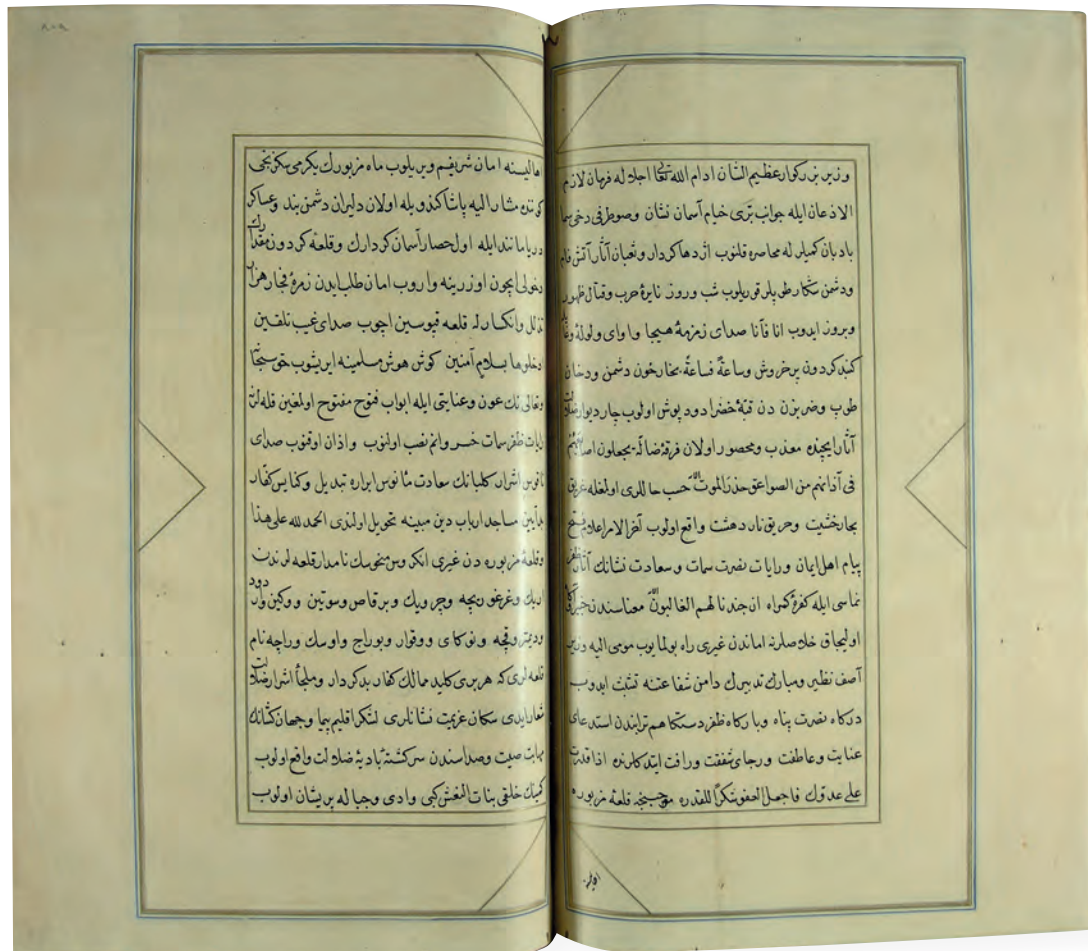 وزير بزركوار عظيم الشان ادام الله تعالى اجلاله فرمان لازم
الاذعان ايله جوانب ترى خيام آسمان نشان وصوطرفى دخى سما
بادبان كميلر له محاصره قلنوب اژدها كردار وثعبان آثار آتش فام
ودشمن شكار طوپلر قوريلوب شب وروز نايرهٔ حرب وقتال ظهور
وبروز ايدوب انا فآنا صداى زمزمهٔ هيجا واواى ولولهٔ وغا
كنبد كردون پرخروش وساعةً فساعةً بخار خون دشمن ودخان
طوب وضربزن دن قبهٔ خضرا دود پوش اولوب چار ديوار ضلالت
آثار ايچنده معذب ومحصور اولان فرقهٔ ضاله يجعلون اصابعهم
فى آذانهم من الصواعق حذر الموت حسب حاللرى اولمغله غريق
بحار خشيت وحريق نار دهشت واقع اولوب آخر الامر اعلام فتح
پيام اهل ايمان ورايات نصرت سمات وسعادت نشانك آثار ظفر
نماسى ايله كفرهٔ كمراه ان جندنا لهم الغالبون معناسندن خبردار
اوليجاق خلاصلرنه اماندن غيرى راه بولمايوب مومى اليه وزير
آصف نظير ومبارك تدبيرك دامن شفاعتنه تشبث ايدوب
دركاه نصرت پناه وباركاه ظفر دستكاهم ترابندن استدعاى
عنايت وعاطفت ورجاى شفقت ورافت ايتدكلرنده اذا قدرت
على عدوك فاجعل العفو شكراً للقدره موجبنجه قلعهٔ مزبوره
اهاليسنه
اهاليسنه امان شريفم ويريلوب ماه مزبورك يكرمى سكزنجى
كوننده مشار اليه پاشا كندويله اولان دليران دشمن بند وعساكر
دريا مانند ايله اول حصار آسمان كردارك وقلعهٔ كردون مقدارك
دخولى ايچون اوزرينه واروب امان طلب ايدن زمرهٔ فجار هزار
تذلل وانكسار له قلعه قپوسين اچوب صداى غيب تلقين
ادخلوها بسلام آمنين كوش هوش مسلمينه ايريشوب حق سبحانه
وتعالى نك عون وعنايتى ايله ابواب فتوح مفتوح اولمغين قله لرنه
رايات ظفر سمات نصب اولنوب واذان اوقنوب صداى
ناقوس اشرار كلبانك سعادت مأنوس ابراره تبديل وكنايس كفار
بدآيين مساجد ارباب دين مبينه تحويل اولندى الحمد لله على هذا
وقلعهٔ مزبوره دن غيرى انكروس منحوسك نامدار قلعه لرندن
وغرغوريچه وچرويك وبرقاص وسوتين ووكين
ودميتروفچه ونوكاى ووقوار وبوراج واوسك وراچه نام
قلعه لرى كه هر برى كليد ممالك كفار بدكردار وملجأ اشرار ضلالت
شعار ايدى سكان عزيمت نشانلرى لشكر اقليم پيما وجهان كشانك
مهابت صيت وصداسندن سركشتهٔ باديهٔ ضلالت واقع اولوب
كمينك خلقى بنات النعش كبى وادى وجباله پريشان اولوب